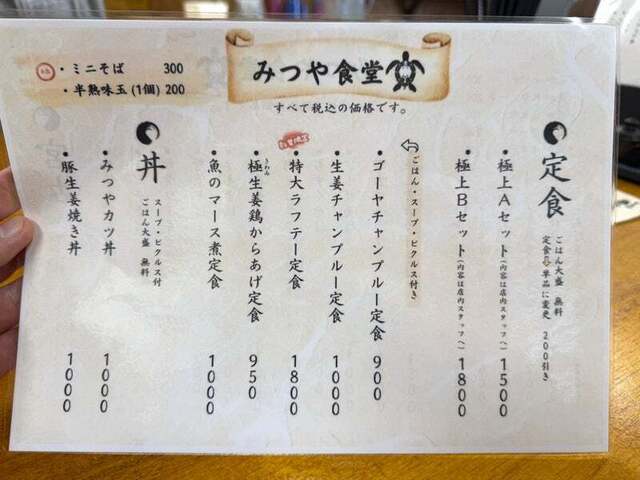 みつや食堂
すべて税込の価格です。
・ミニそば 300
・半熟味玉(1個) 200
定食
ごはん大盛 無料
定食⇨単品に変更 200引き
・極上Aセット(内容は店内スタッフへ) 1500
・極上Bセット(内容は店内スタッフへ) 1800
ごはん・スープ・ピクルス付き
・ゴーヤチャンプルー定食 900
・生姜チャンプルー定食 1000
・特大ラフテー定食 1800
・極生姜鶏からあげ定食 950
・魚のマース煮定食 1000
丼
スープ・ピクルス付
ごはん大盛 無料
・みつやカツ丼 1000
・豚生姜焼き丼 1000